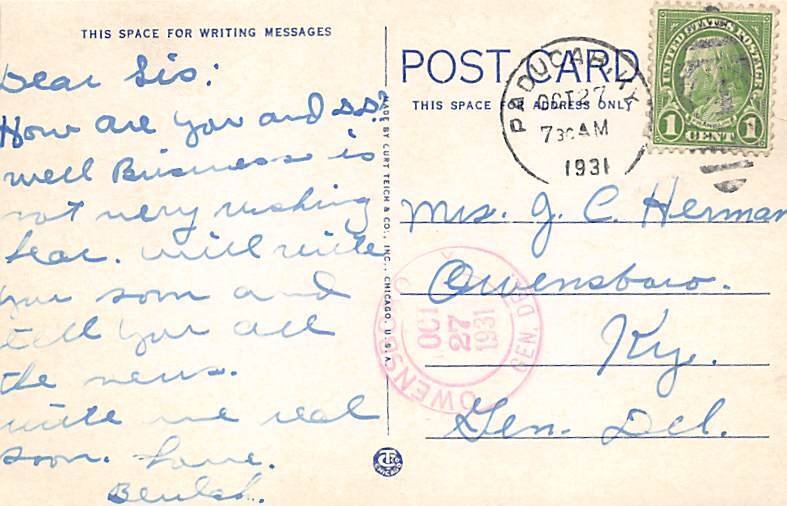 THIS SPACE FOR WRITING MESSAGES
Dear Sis:
How are you and DD?
well Business is
not very rushing
hear. will write
you soon and
tell you all
the news.
write me real
soon. Love.
Beulah.
MADE BY CURT TEICH & CO., INC., CHICAGO, U.S.A.
POST CARD
THIS SPACE FOR ADDRESS ONLY
PADUCAH, KY
OCT 27
730AM
1931
UNITED STATES POSTAGE
1 CENT 1
Mrs. J. C. Herman
Owensboro.
Ky.
Gen. Del.
OWENSBORO
GEN. DEL
OCT
27
1931
CHICAGO